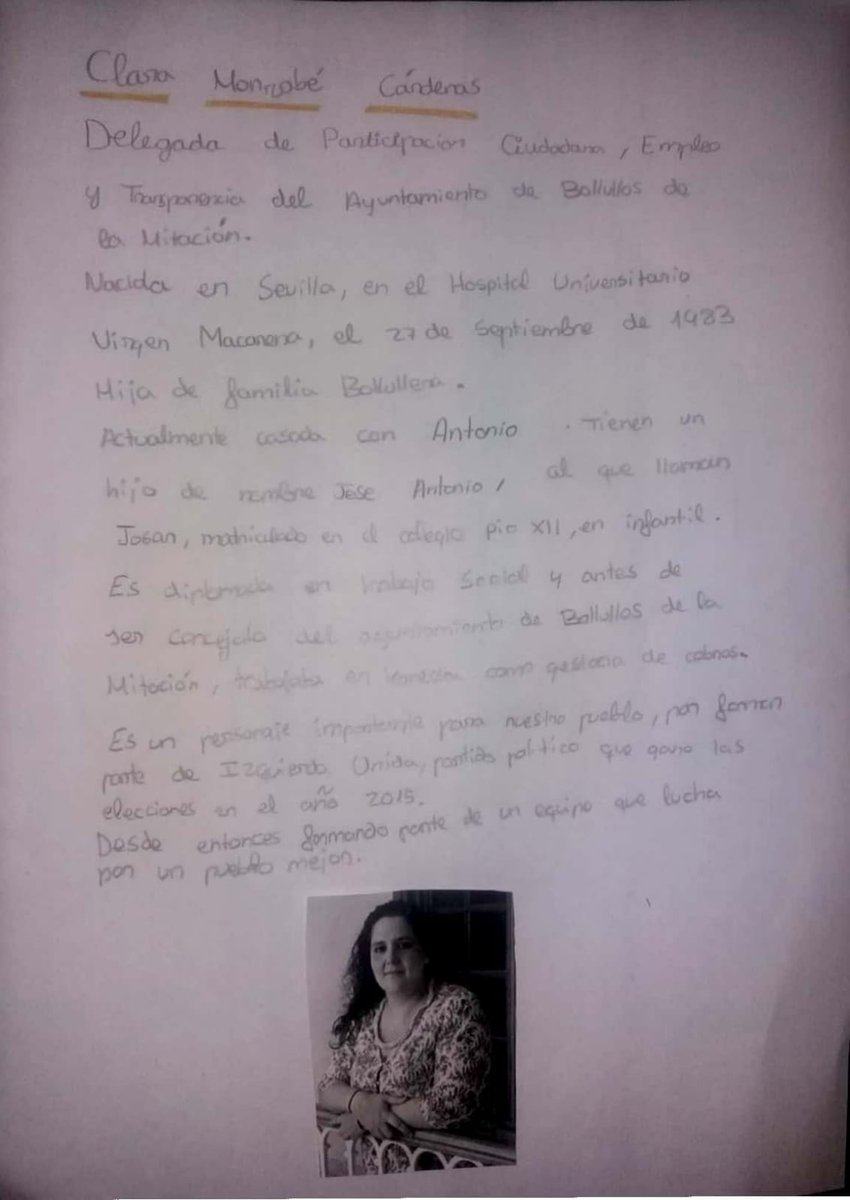 Clara Monrobé Cárdenas
Delegada de Participacion Ciudadana, Empleo
y Transparencia del Ayuntamiento de Bollullos de
la Mitación.
Nacida en Sevilla, en el Hospital Universitario
Virgen Macarena, el 27 de Septiembre de 1983
Hija de familia Bollullera.
Actualmente casada con Antonio . Tienen un
hijo de nombre Jose Antonio, al que llaman
Josan, matriculado en el colegio pio XII, en infantil.
Es diplomada en trabajo Social y antes de
ser concejala del ayuntamiento de Bollullos de la
Mitación, trabajaba en como gestora de cobros.
Es un personaje importante para nuestro pueblo, por formar
parte de Izquierda Unida, partido político que gano las
elecciones en el año 2015.
Desde entonces formando parte de un equipo que lucha
por un pueblo mejor.